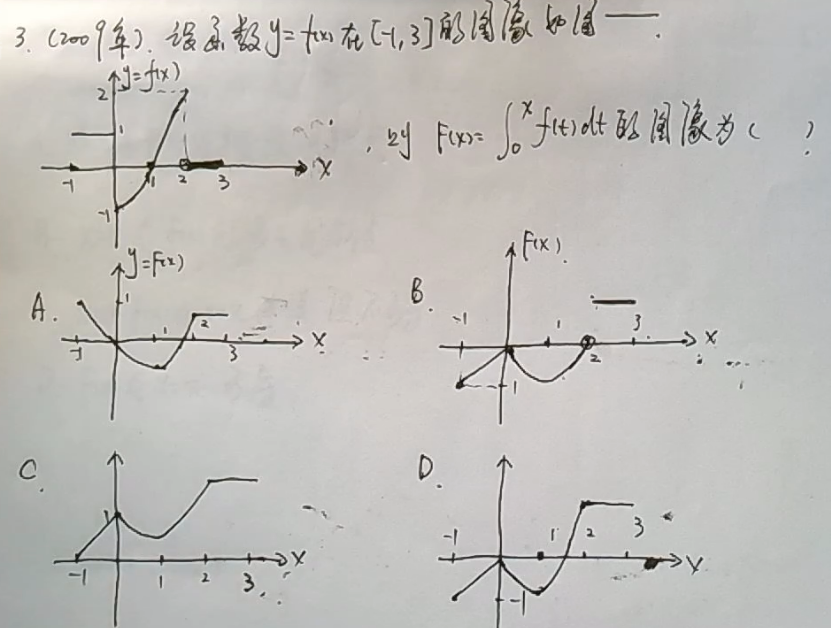 3. (2009年). 设函数y=f(x)在[-1,3]的图像如图——.
y=f(x)
2
1
-1 1 2 3 X
-1
, 则 F(x)=∫₀ˣf(t)dt的图像为( )
A.
y=F(x)
1
-1 1 2 3 X
B.
F(x).
-1 1 2 3 X
-1
C.
1
-1 1 2 3 X
D.
-1 1 2 3 X
-1